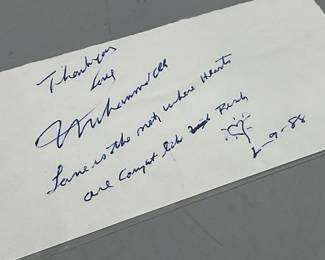 Thankyou
Love
Muhammad Ali
Love is the net, where Hearts
are Caught like Fish
2-9-88